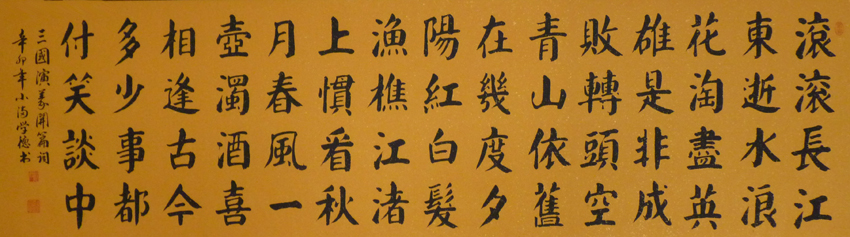 滾滾長江
東逝水浪
花淘盡英
雄是非成
敗轉頭空
青山依舊
在幾度夕
陽紅白髮
漁樵江渚
上慣看秋
月春風一
壺濁酒喜
相逢古今
多少事都
付笑談中
三國演義開篇詞
辛卯年小